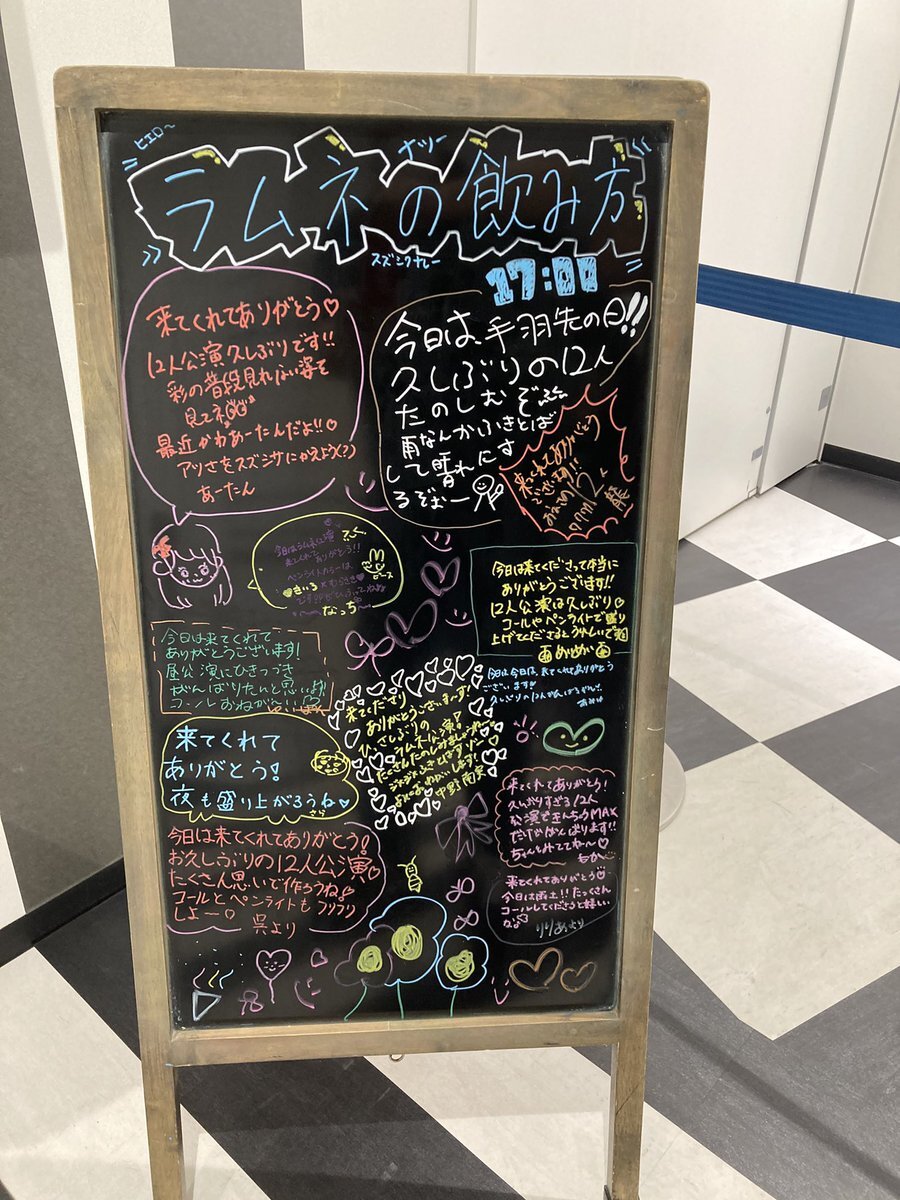 ヒエロ～
ラムネの飲み方
17:00
来てくれてありがとう♡
12人公演久しぶりです!!
彩の普段見れない姿を
見てネ
最近かわあーたんだよ!!♡
あーたん
今日は手羽先の日!!
久しぶりの12人
たのしむぞ
雨なんかふきとば
して晴れにす
るぞぉー
来てくれてありがとう
ございます!!
今日はラムネ公演
来てくれて
ありがとう!!
ペンライトカラーは
きいろ×むらさき
なっち
ピース
今日は来てくださって本当に
ありがとうございます!!
12人公演は久しぶり♡
コールやペンライトで盛り
上げてくださるとうれしいです
あやめか
今日は来てくれて
ありがとうございます!
昼公演にひきつづき
がんばりたいと思います
コールおねがい
今日は今日は、来てくれてありがとう
ございます!
来てくださり
ありがとうございまーす!
ひさしぶりの
ラムネ公演!
たくさんたのしみましょうねー
よろしくおねがいします!
来てくれて
ありがとう!
夜も盛り上がろうね♡
さら
来てくれてありがとう!
久しぶりすぎる12人
公演できんちょうMAX
だけどがんばります!!
ちゃんとみててね～♡
今日は来てくれてありがとう!
お久しぶりの12人公演♡
たくさん思いで作ろうね。
コールとペンライトもフリフリ
しよー
呉より
来てくれてありがとう
今日は雨土!!たっくさん
コールしてくださると嬉しい
な
りりあより